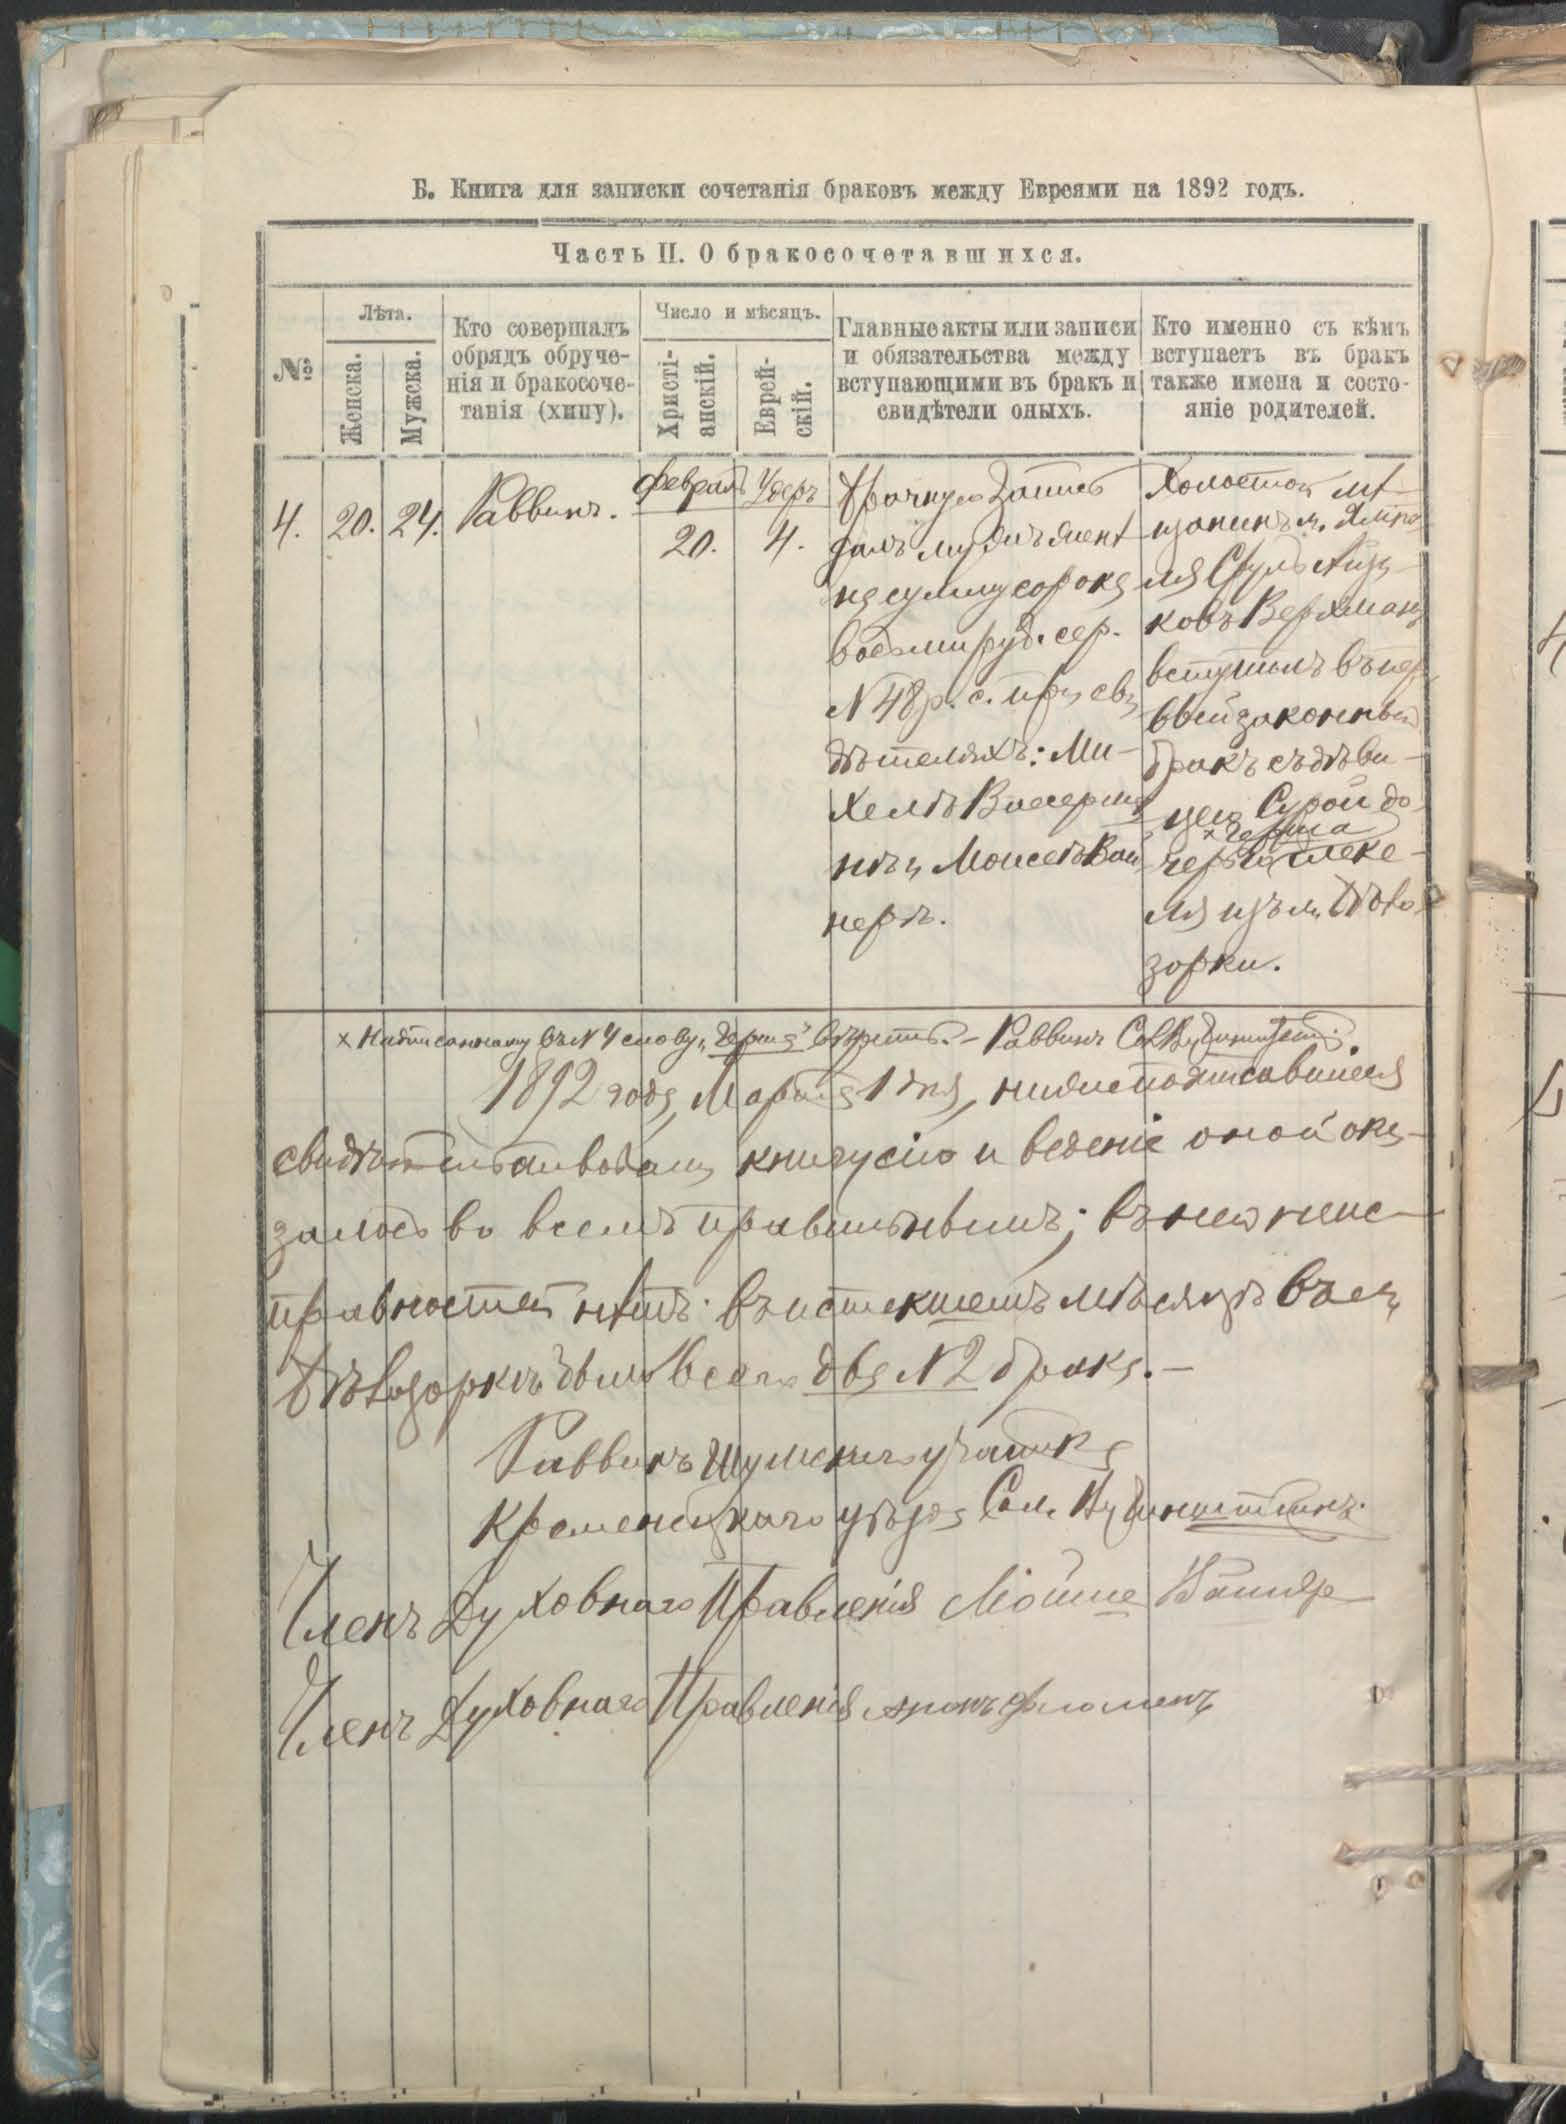 Б. Книга для записки сочетанія браковъ между Евреями на 1892 годъ.
Часть II. О бракосочетавшихся.
№
Лѣта.
Женска.
Мужска.
Кто совершалъ
обрядъ обруче-
нія и бракосоче-
танія (хипу).
Число и мѣсяцъ.
Христі-
анскій.
Еврей-
скій.
Главные акты или записи
и обязательства между
вступающими въ бракъ и
свидѣтели оныхъ.
Кто именно съ кѣмъ
вступаетъ въ бракъ
также имена и состо-
яніе родителей.
4.
20.
24.
Раввинъ.
Февраль
20.
Удеръ
4.
Брачную запись
далъ мужъ женѣ
на сумму сорокъ
восемь руб. сер.
№ 48 р. с. при сви
дѣтеляхъ: Ми-
хель Васерма
нъ и Моисей Ваи
неръ.
Холостой мѣ-
щанинъ м. Ямпо
ля Сруль Айзи-
ковъ Верхманъ
вступилъ въ пер
вый законный
бракъ съ дѣви-
цею Сурой до
x Герша
черью
ля изъ м. Бѣло
зорки.
x Надписанному въ № 4 слову „Герша" вѣрить. – Раввинъ
1892 года, Марта 1 дня, нижеподписавшіеся
свидѣтельствовали книгу сію и веденіе оной ока-
залось во всемъ правильнымъ; въ ней неис-
правностей нѣтъ. въ истекшемъ мѣсяцѣ въ м.
Бѣлозоркѣ было всего два № 2 брака. –
Раввинъ Шумскаго участка
Кременецкаго уѣзда Сол.
Членъ Духовнаго Правленія Мойше
Членъ Духовнаго Правленія